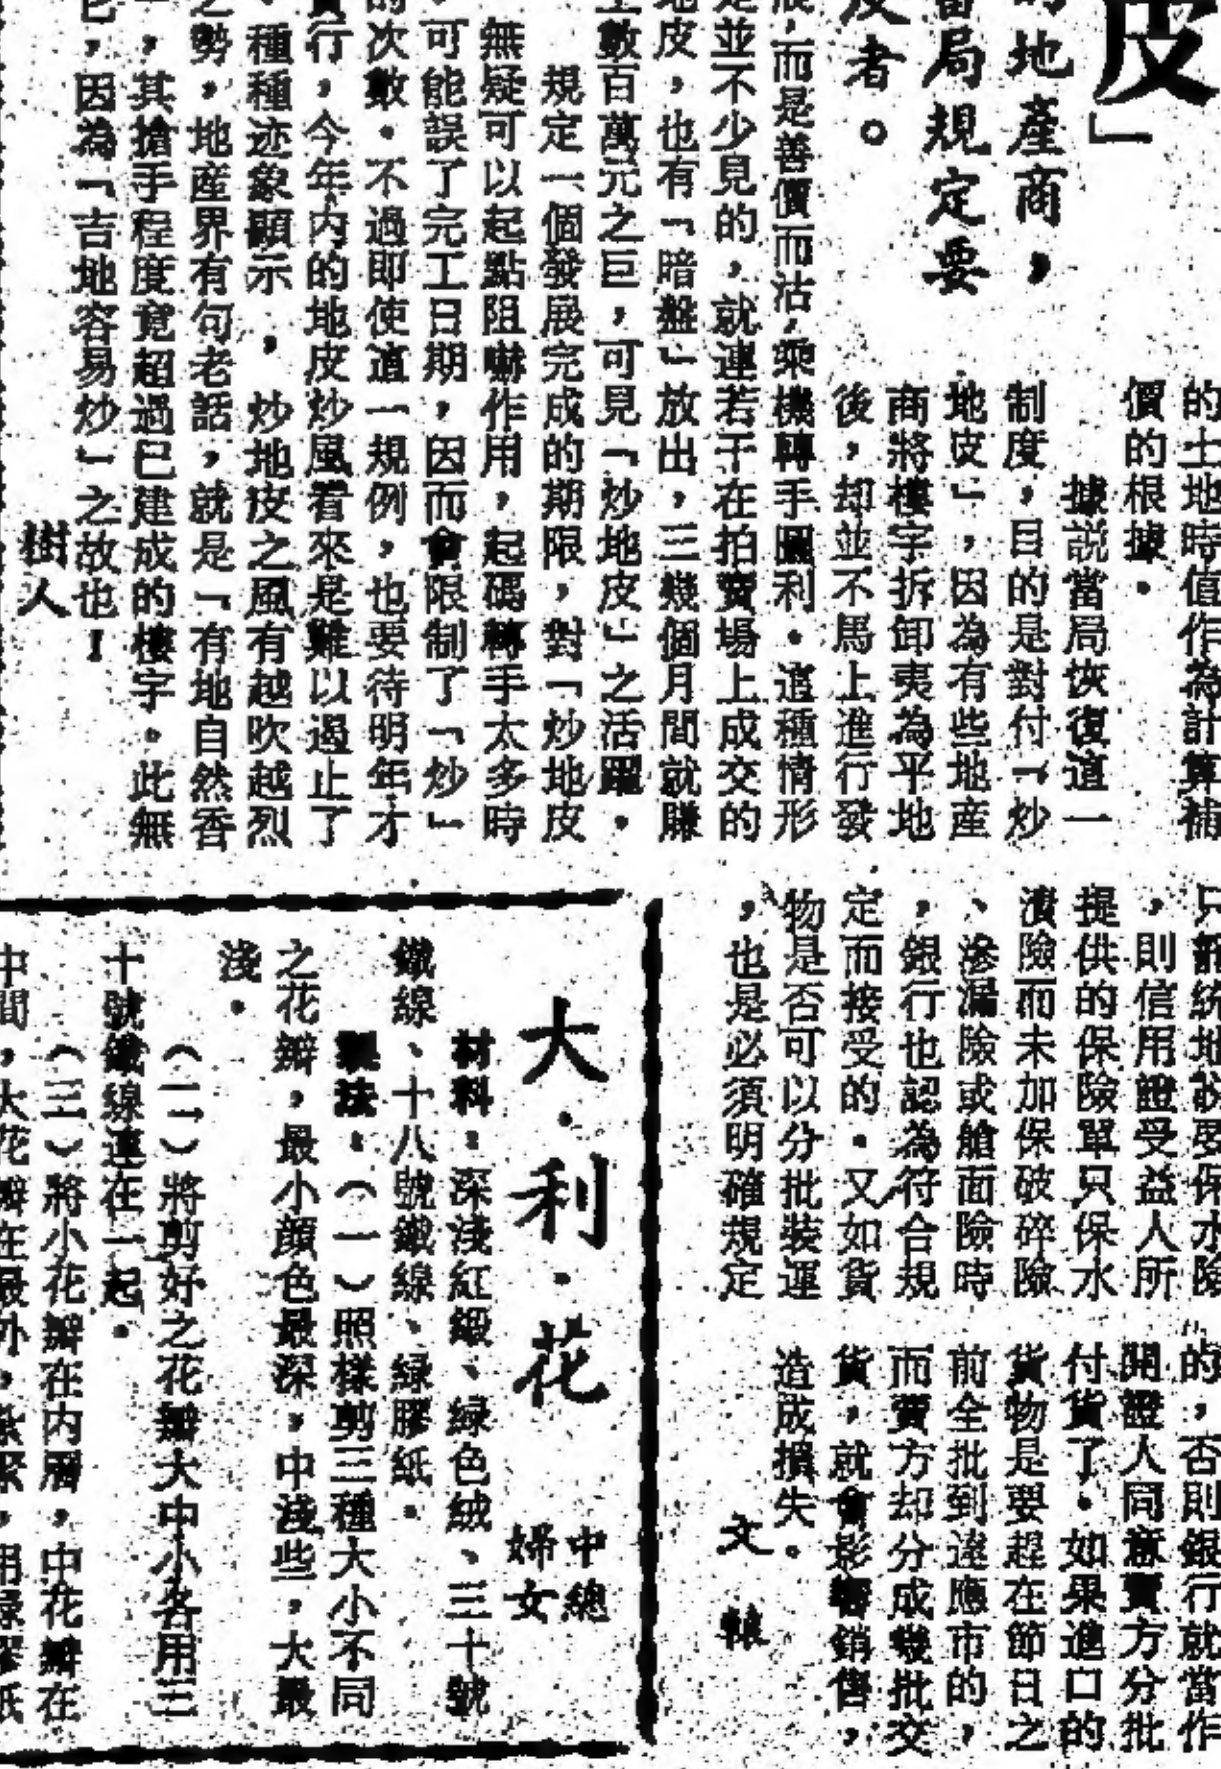 皮」
的地產商，
當局規定要
皮者。
的土地時值作為計算補
價的根據。
據説當局恢復這一
制度，目的是對付「炒
地皮」，因為有些地產
商將樓宇拆卸夷為平地
後，却並不馬上進行發
展，而是善價而沽，乘機轉手圖利。這種情形
是並不少見的，就連若干在拍賣場上成交的
地皮，也有「暗盤」放出，三幾個月間就賺
上數百萬元之巨，可見「炒地皮」之活躍。
規定一個發展完成的期限，對「炒地皮
無疑可以起點阻嚇作用，起碼轉手太多時
，可能誤了完工日期，因而會限制了「炒」
的次數。不過即使這一規例，也要待明年才
實行，今年内的地皮炒風看來是難以遏止了
、種種迹象顯示，炒地皮之風有越吹越烈
之勢，地產界有句老話，就是「有地自然香
」，其搶手程度竟超過已建成的樓宇。此無
它，因為「吉地容易炒」之故也！
樹人
只籠統地説要保水險
，則信用證受益人所
提供的保險單只保水
漬險而未加保破碎險
、滲漏險或艙面險時
，銀行也認為符合規
定而接受的。又如貨
物是否可以分批裝運
，也是必須明確規定
的，否則銀行就當作
開證人同意賣方分批
付貨了。如果進口的
貨物是要趕在節日之
前全批到達應市的，
而賣方却分成幾批交
貨，就會影響銷售，
造成損失。
文
大·利·花
中總
婦女
材料：深淺紅緞、緑色絨、三十號
鐵線、十八號鐵線、緑膠紙。
製法：（一）照樣剪三種大小不同
之花瓣，最小顔色最深，中淺些，大最
淺。
（二）將剪好之花瓣大中小各用三
十號鐵線連在一起。
（三）將小花瓣在内層，中花瓣在
中間，大花瓣在最外，紮緊，用緑膠紙